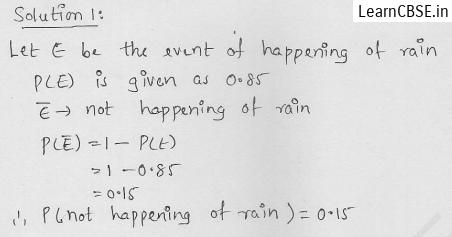 LearnCBSE.in
Solution 1:
Let E be the event of happening of rain
P(E) is given as 0.85
E̅ → not happening of rain
P(E̅) = 1 - P(E)
= 1 - 0.85
= 0.15
∴ P(not happening of rain) = 0.15